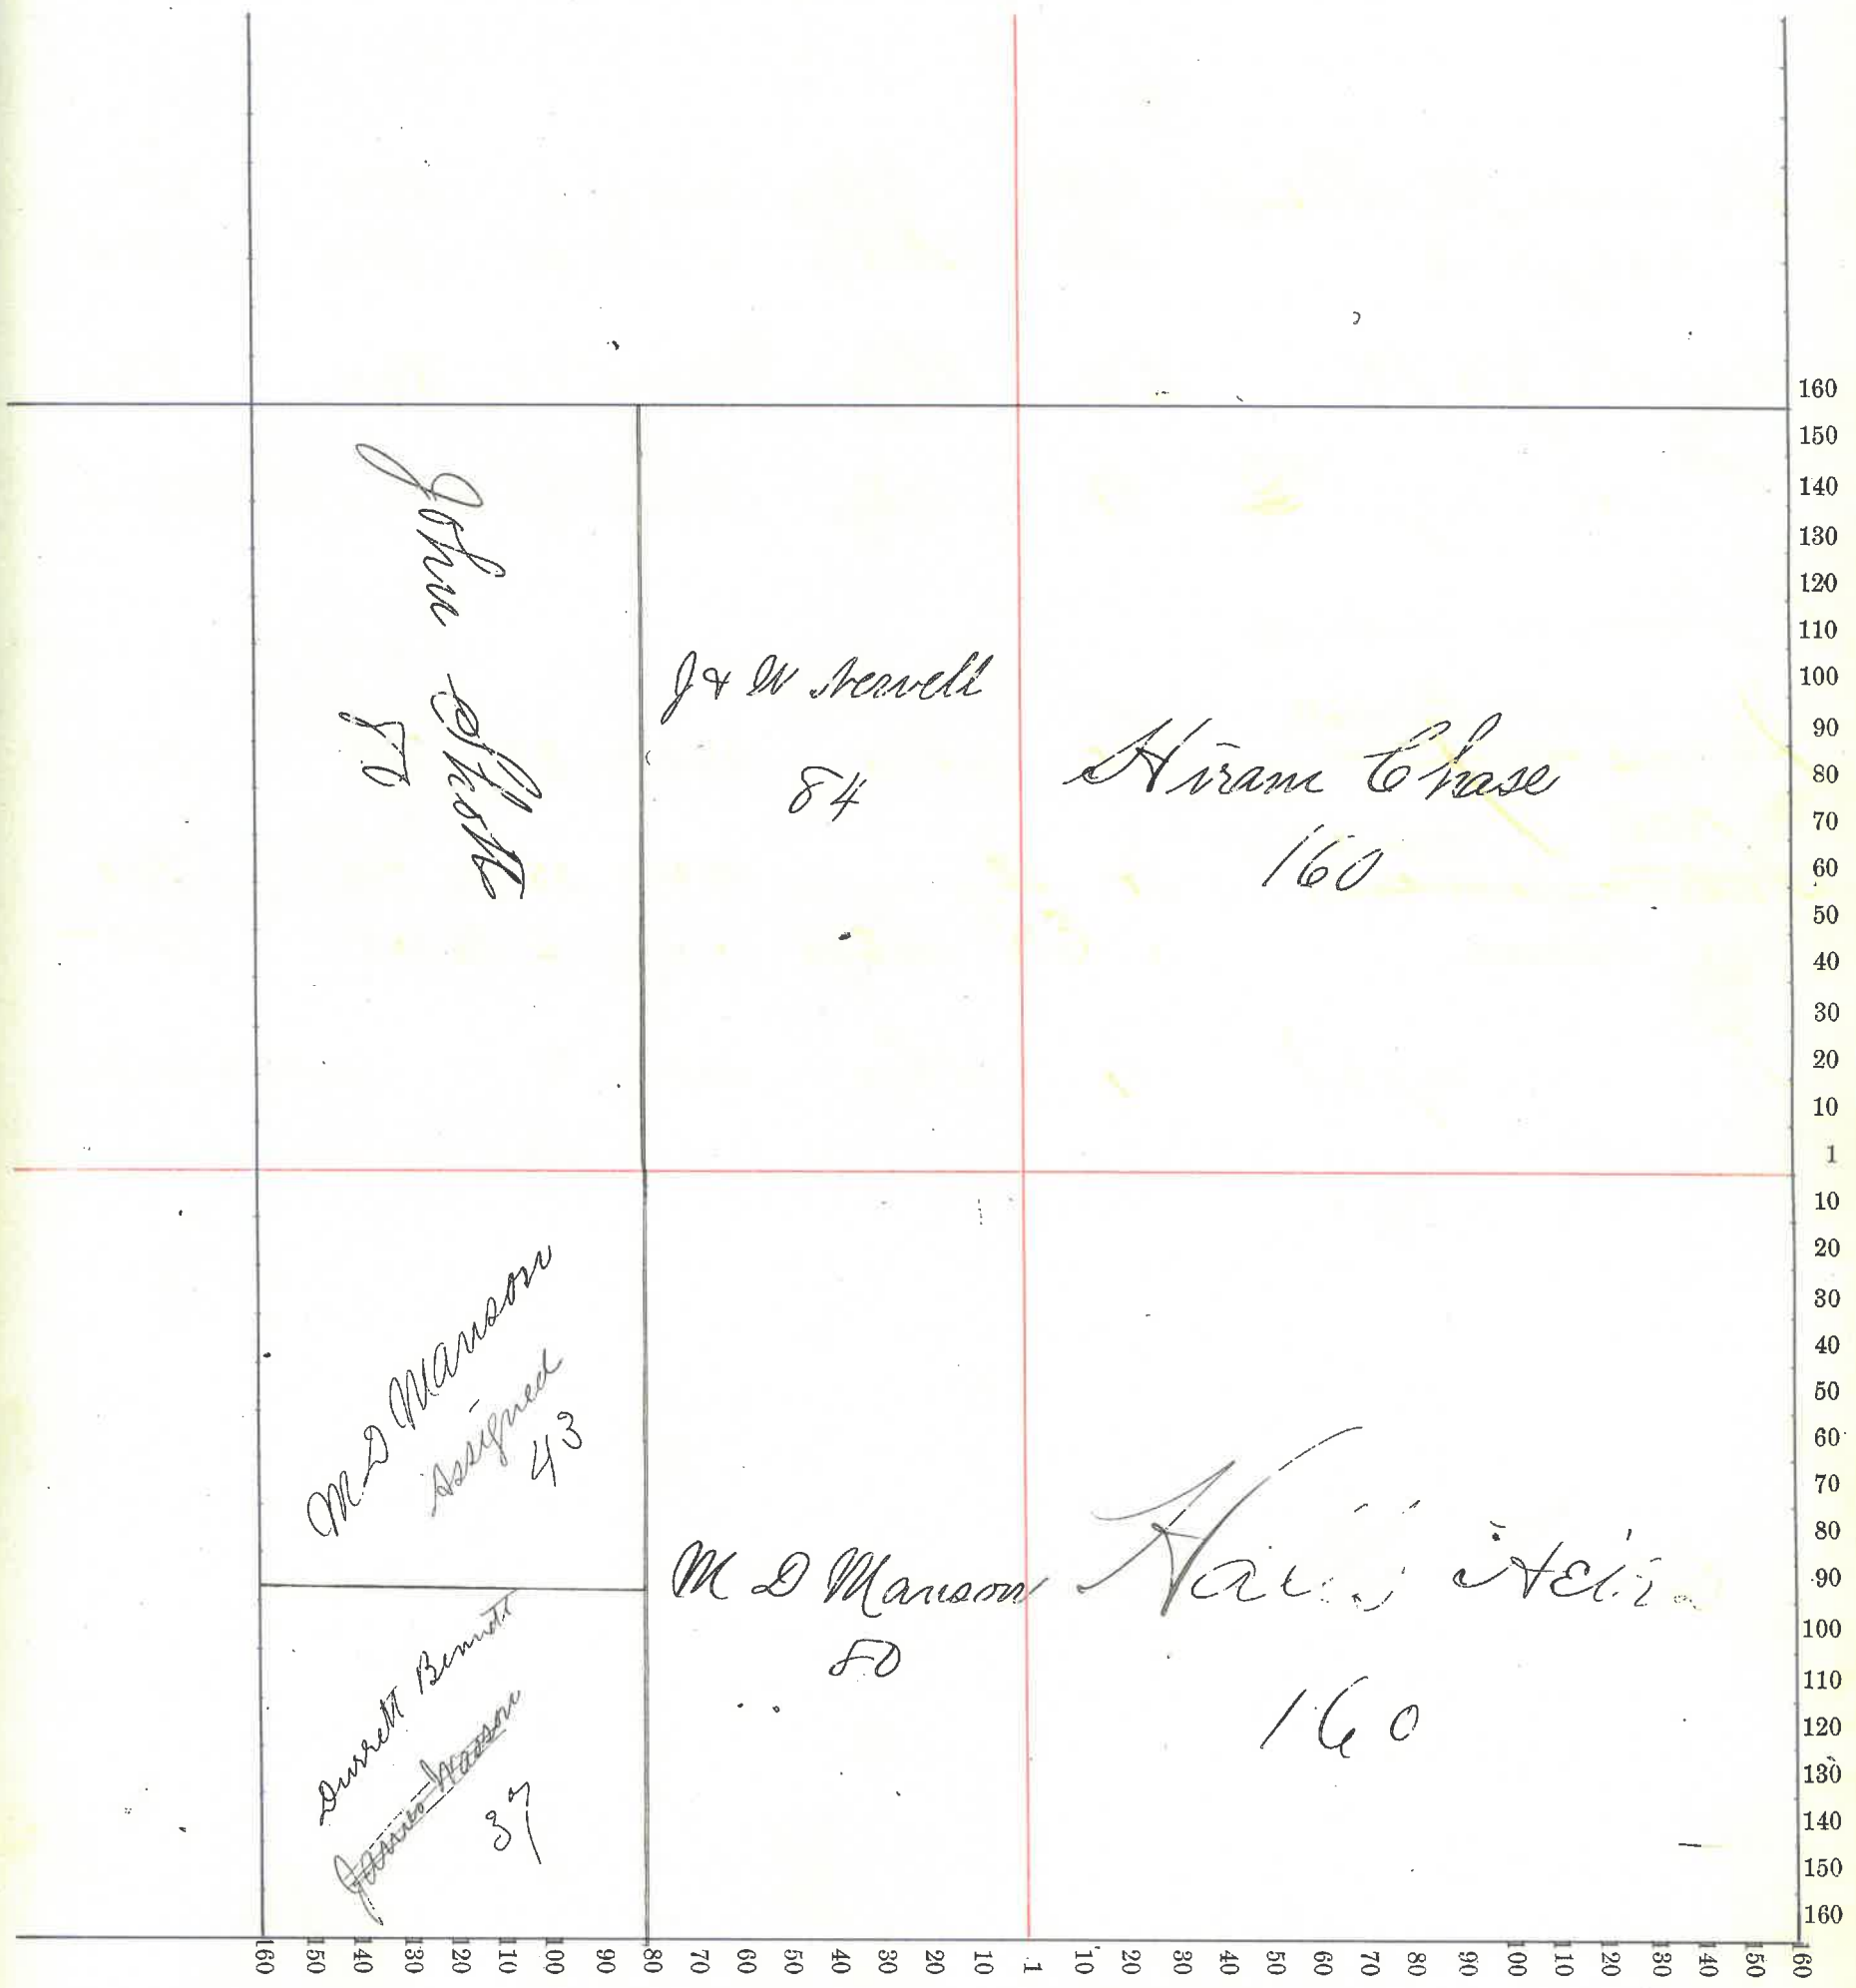 John Shott
80
J & W Newell
84
Hiram Chase
160
M D Manson
Assigned
43
Durrett Bennett
James Wasson
37
M D Manson
80
160
160
150
140
130
120
110
100
90
80
70
60
50
40
30
20
10
1
10
20
30
40
50
60
70
80
90
100
110
120
130
140
150
160
160 150 140 130 120 110 100 90 80 70 60 50 40 30 20 10 1 10 20 30 40 50 60 70 80 90 100 110 120 130 140 150 160